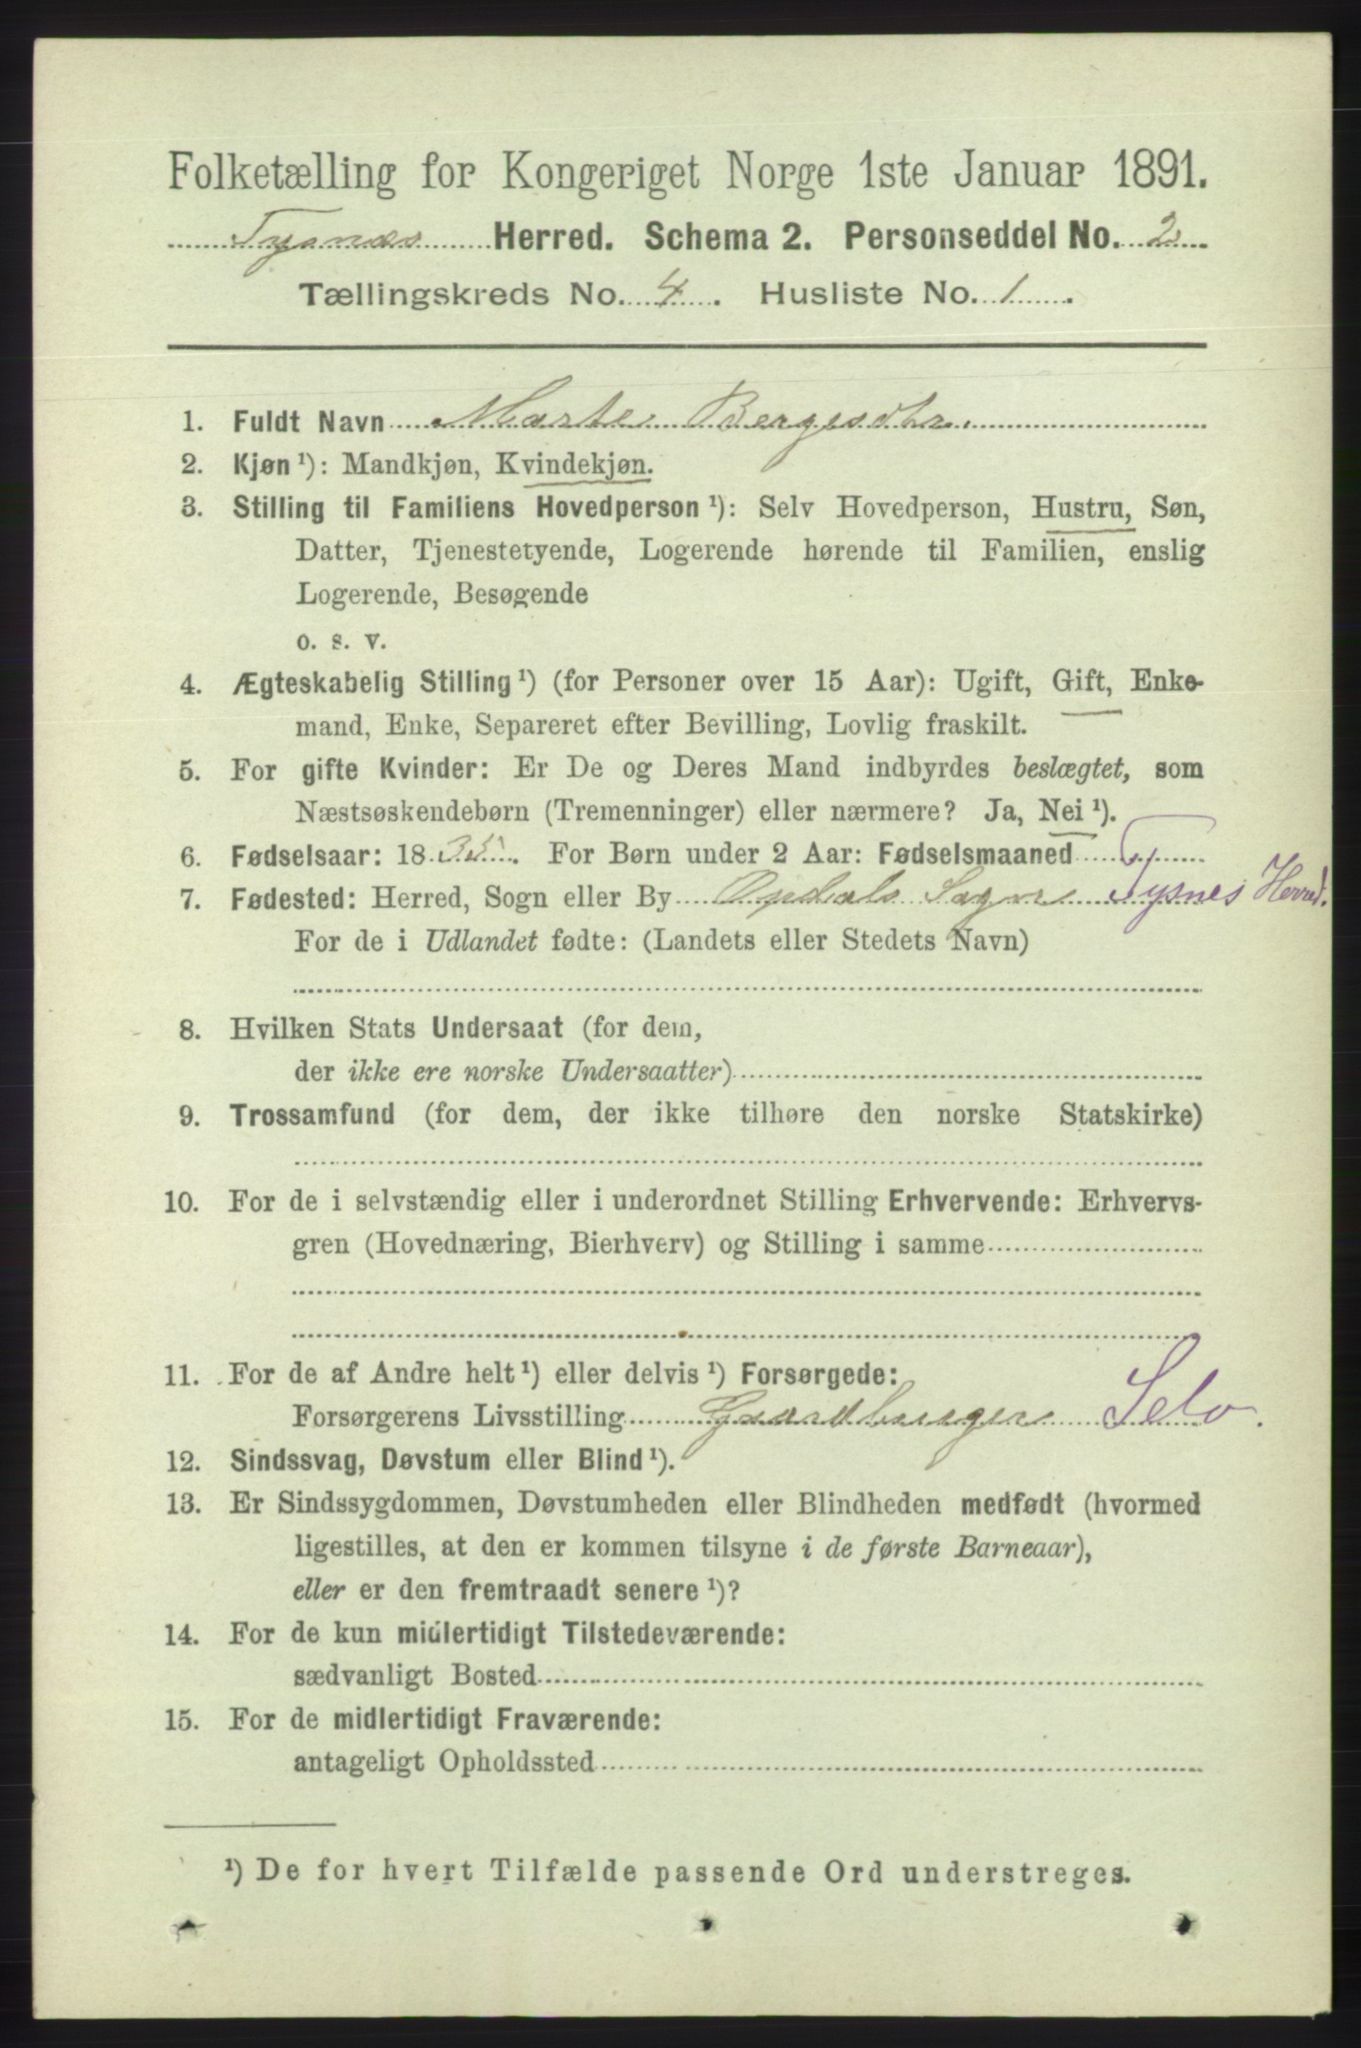 Folketælling for Kongeriget Norge 1ste Januar 1891.
Tysnæs Herred. Schema 2. Personseddel No. 2
Tællingskreds No. 4. Husliste No. 1.
1. Fuldt Navn Marte Bergesdtr.
2. Kjøn ¹): Mandkjøn, Kvindekjøn.
3. Stilling til Familiens Hovedperson ¹): Selv Hovedperson, Hustru, Søn,
Datter, Tjenestetyende, Logerende hørende til Familien, enslig
Logerende, Besøgende
o. s. v.
4. Ægteskabelig Stilling ¹) (for Personer over 15 Aar): Ugift, Gift, Enke-
mand, Enke, Separeret efter Bevilling, Lovlig fraskilt.
5. For gifte Kvinder: Er De og Deres Mand indbyrdes beslægtet, som
Næstsøskendebørn (Tremenninger) eller nærmere? Ja, Nei ¹).
6. Fødselsaar: 1835. For Børn under 2 Aar: Fødselsmaaned
7. Fødested: Herred, Sogn eller By Opdals Sogn Tysnes Herred.
For de i Udlandet fødte: (Landets eller Stedets Navn)
8. Hvilken Stats Undersaat (for dem,
der ikke ere norske Undersaatter)
9. Trossamfund (for dem, der ikke tilhøre den norske Statskirke)
10. For de i selvstændig eller i underordnet Stilling Erhvervende: Erhvervs-
gren (Hovednæring, Bierhverv) og Stilling i samme
11. For de af Andre helt ¹) eller delvis ¹) Forsørgede:
Forsørgerens Livsstilling Gaardbruger Selv.
12. Sindssvag, Døvstum eller Blind ¹).
13. Er Sindssygdommen, Døvstumheden eller Blindheden medfødt (hvormed
ligestilles, at den er kommen tilsyne i de første Barneaar),
eller er den fremtraadt senere ¹)?
14. For de kun midlertidigt Tilstedeværende:
sædvanligt Bosted
15. For de midlertidigt Fraværende:
antageligt Opholdssted
¹) De for hvert Tilfælde passende Ord understreges.